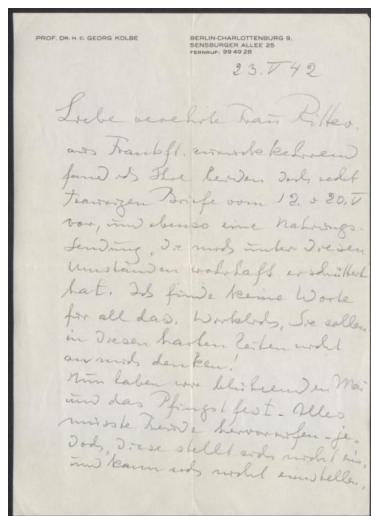 PROF. DR. H. C. GEORG KOLBE
BERLIN-CHARLOTTENBURG 9,
SENSBURGER ALLEE 25
FERNRUF: 99 49 28
23. V 42
Liebe verehrte Frau Ritter,
aus Frankft. zurückkehrend
fand ich Ihre beiden doch recht
traurigen Briefe vom 12. & 20. V
vor, und ebenso eine Nahrungs-
sendung, die mich unter diesen
Umständen wahrhaft erschüttert
hat. Ich finde keine Worte
für all das. Wirklich, Sie sollen
in diesen harten Zeiten nicht
an mich denken!
Nun haben wir blühenden Mai
und das Pfingstfest – Alles
müsste Freude hervorrufen – je-
doch, diese stellt sich nicht ein,
und kann sich nicht einstellen,